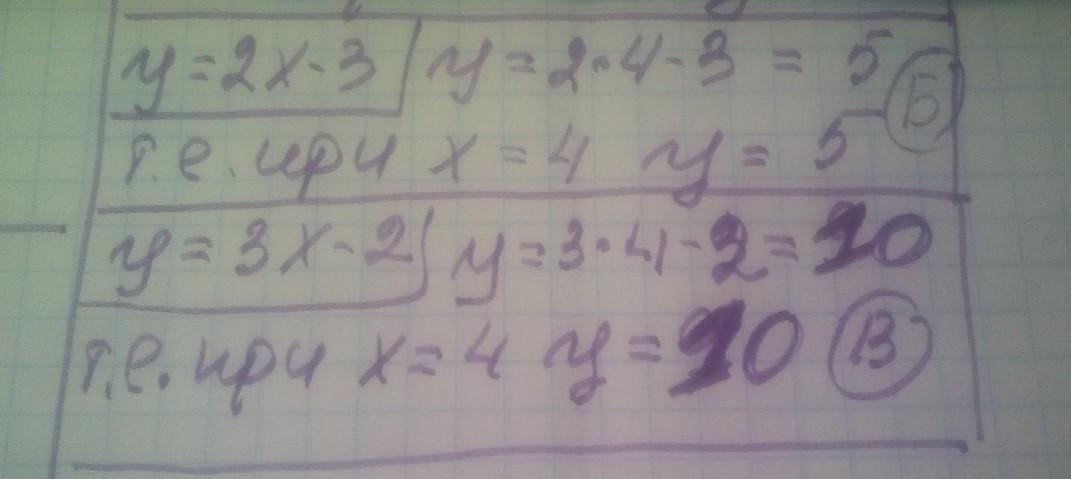 y = 2x - 3 y = 2·4 - 3 = 5
т.е. при x = 4 y = 5 Б
y = 3x - 2 y = 3·4 - 2 = 10
т.е. при x = 4 y = 10 В